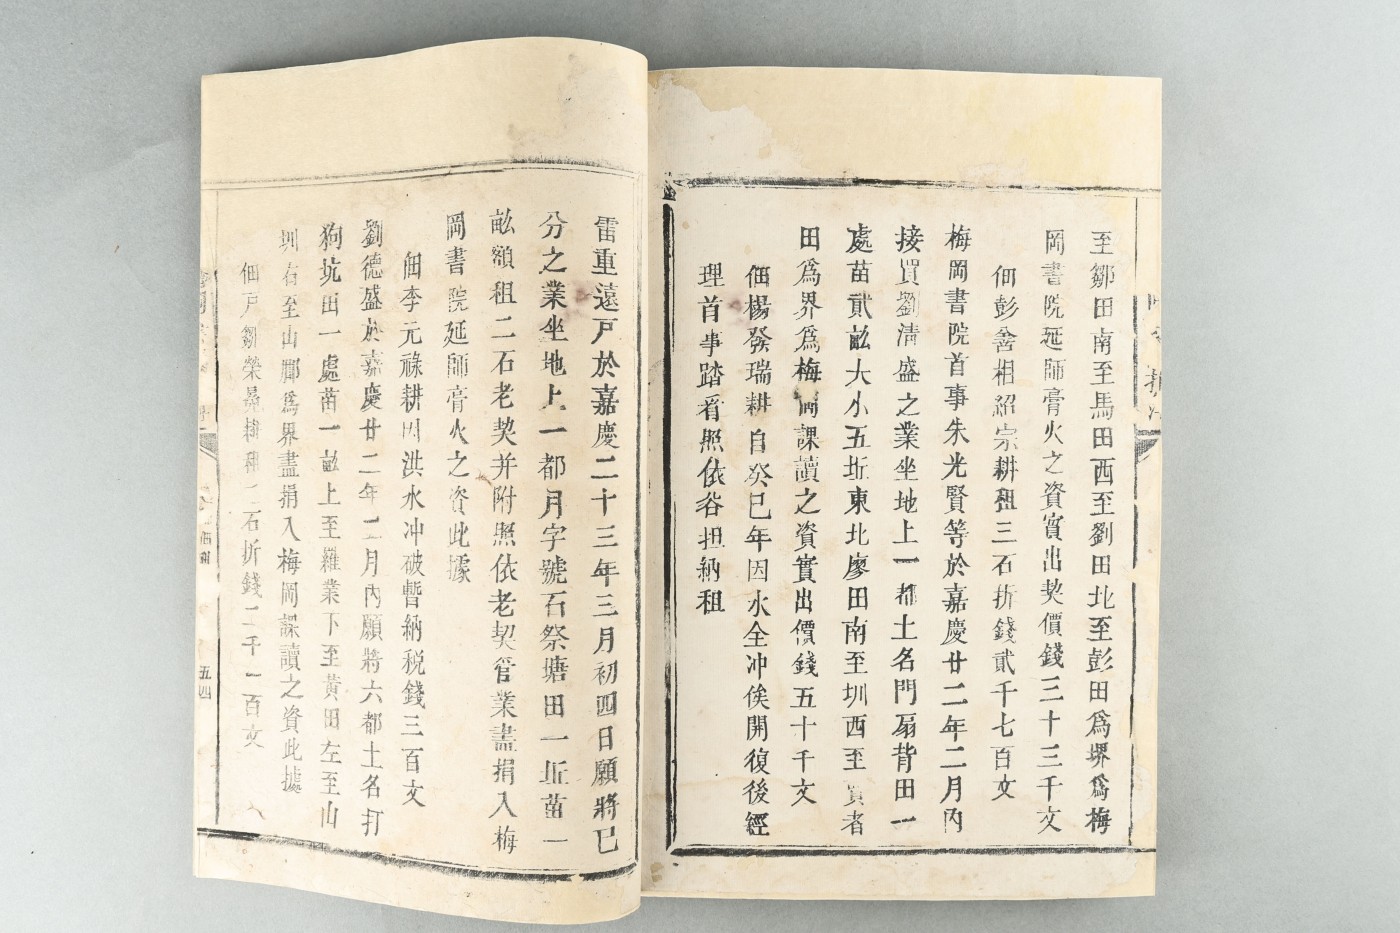 至鄒田南至馬田西至劉田北至彭田爲堺爲梅
岡書院延師膏火之資實出契價錢三十三千文
佃彭舍相紹宗耕租三石折錢貳千七百文
梅岡書院首事朱光賢等於嘉慶廿二年二月內
接買劉清盛之業坐地上一都土名門扇背田一
處苗貳畝大小五坵東北廖田南至圳西至買者
田爲界爲梅岡課讀之資實出價錢五十千文
佃楊發瑞耕自癸巳年因水全冲俟開復後經
理首事踏看照依谷担納租
雷重遠戸於嘉慶二十三年三月初四日願將已
分之業坐地上一都月字號石祭塘田一坵苗一
畝額租二石老契并附照依老契管業盡捐入梅
岡書院延師膏火之資此據
佃李元祿耕因洪水冲破暫納税錢三百文
劉德盛於嘉慶廿二年二月內願將六都土名打
狗坑田一處苗一畝上至羅業下至黃田左至山
圳右至山脚爲界盡捐入梅岡課讀之資此據
佃戸鄒榮 耕租二石折錢二千一百文
五四